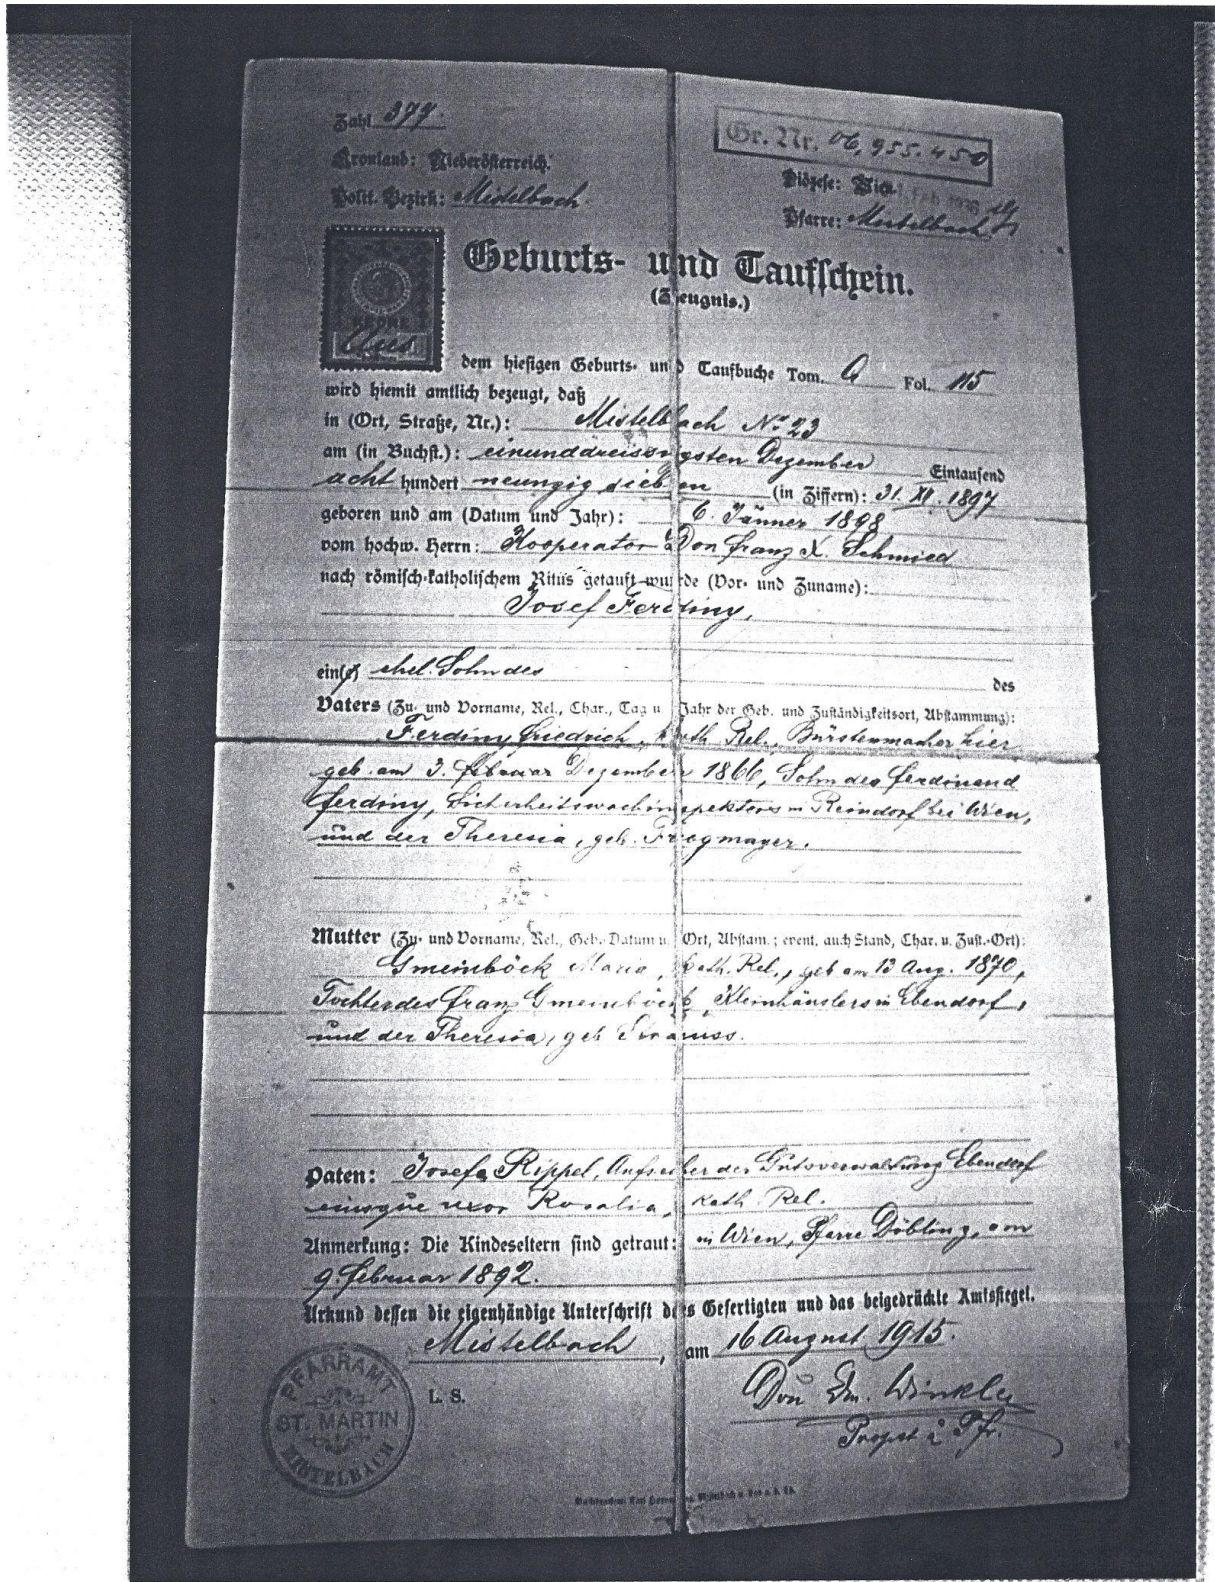 Zahl 377.
Gr. Nr. 06,955.450
Kronland: Niederösterreich.
Diözese: Wien
Polit. Bezirk: Mistelbach.
Pfarre: Mistelbach
Geburts- und Taufschein.
(Zeugnis.)
KRONE
Aus
dem hiesigen Geburts- und Taufbuche Tom. Fol. 115
wird hiemit amtlich bezeugt, daß
in (Ort, Straße, Nr.): Mistelbach No 23
am (in Buchst.): einunddreissigsten Dezember Eintausend
acht hundert neunzig sieben (in Ziffern): 31. XII. 1897
geboren und am (Datum und Jahr): 6. Jänner 1898
vom hochw. Herrn: Kooperator Don Franz X. Schmied
nach römisch-katholischem Ritus getauft wurde (Vor- und Zuname):
Josef Ferdiny,
ein(e) ehel. Sohn des des
Vaters (Zu- und Vorname, Rel., Char., Tag u. Jahr der Geb. und Zuständigkeitsort, Abstammung):
Ferdiny Friedrich, kath. Rel., Bürstenmacher hier
geb. am 3. Februar Dezember 1866, Sohn des Ferdinand
Ferdiny, Sicherheitswachinspektors in Reindorf bei Wien,
und der Theresia, geb.
Mutter (Zu- und Vorname, Rel., Geb.-Datum u. Ort, Abstam.; event. auch Stand, Char. u. Zust.-Ort):
Gmeinböck Maria, kath. Rel., geb am 13 Aug. 1870,
Tochter des Franz Gmeinböck, Kleinhäuslers in Ebendorf,
und der Theresia, geb Strauss.
Paten: Josef Rippel, Aufseher der Gutsverwaltung Ebendorf
eiusque uxor Rosalia, kath. Rel.
Anmerkung: Die Kindeseltern sind getraut: in Wien, Pfarre Döbling, am
9. Februar 1892.
Urkund dessen die eigenhändige Unterschrift des Gefertigten und das beigedrückte Amtssiegel.
Mistelbach, am 16 August 1915.
PFARRAMT
ST. MARTIN
MISTELBACH
L. S.
Don Em. Winkler
Propst & Pfr.